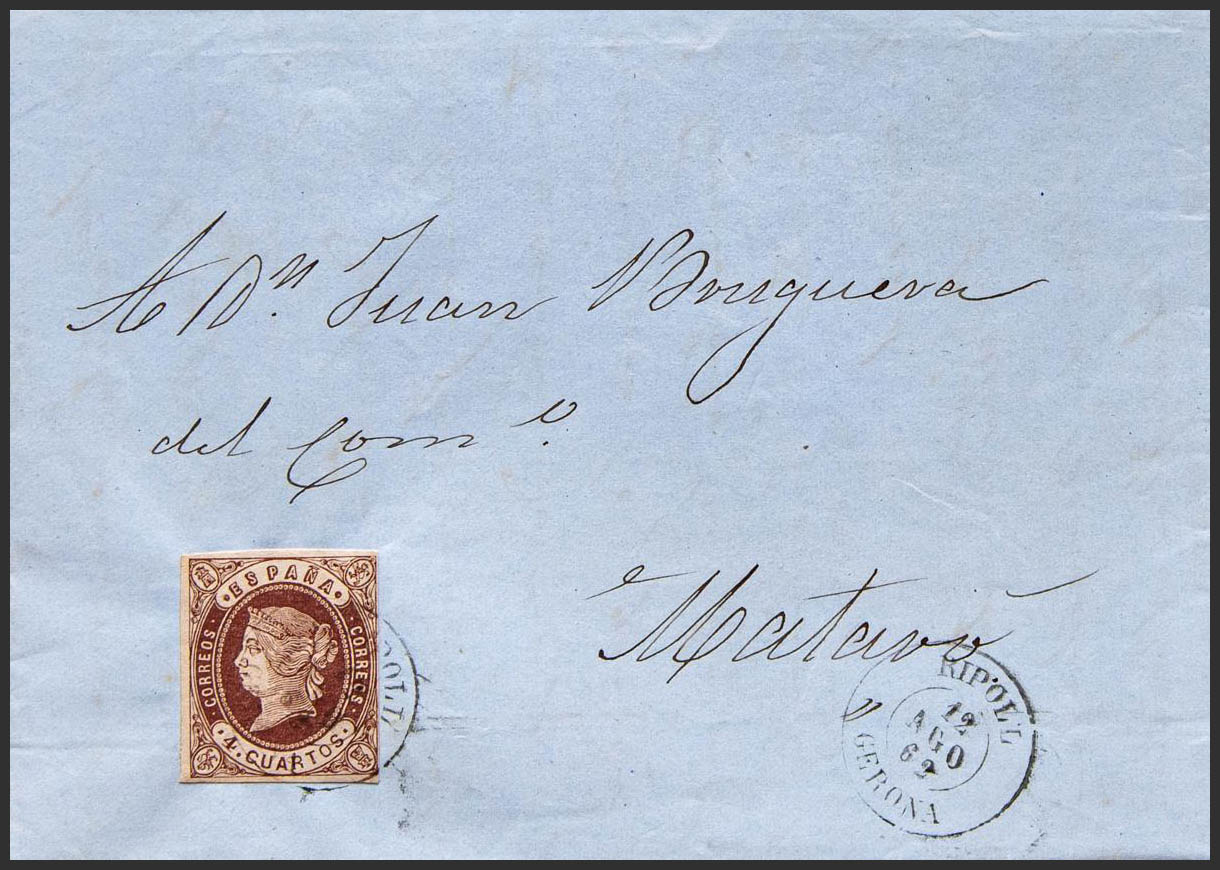 A Dn. Juan Bruguera
del Como.
Mataró
ESPAÑA
CORREOS
CORREOS
4. CUARTOS
RIPOLL
12
AGO
62
GERONA